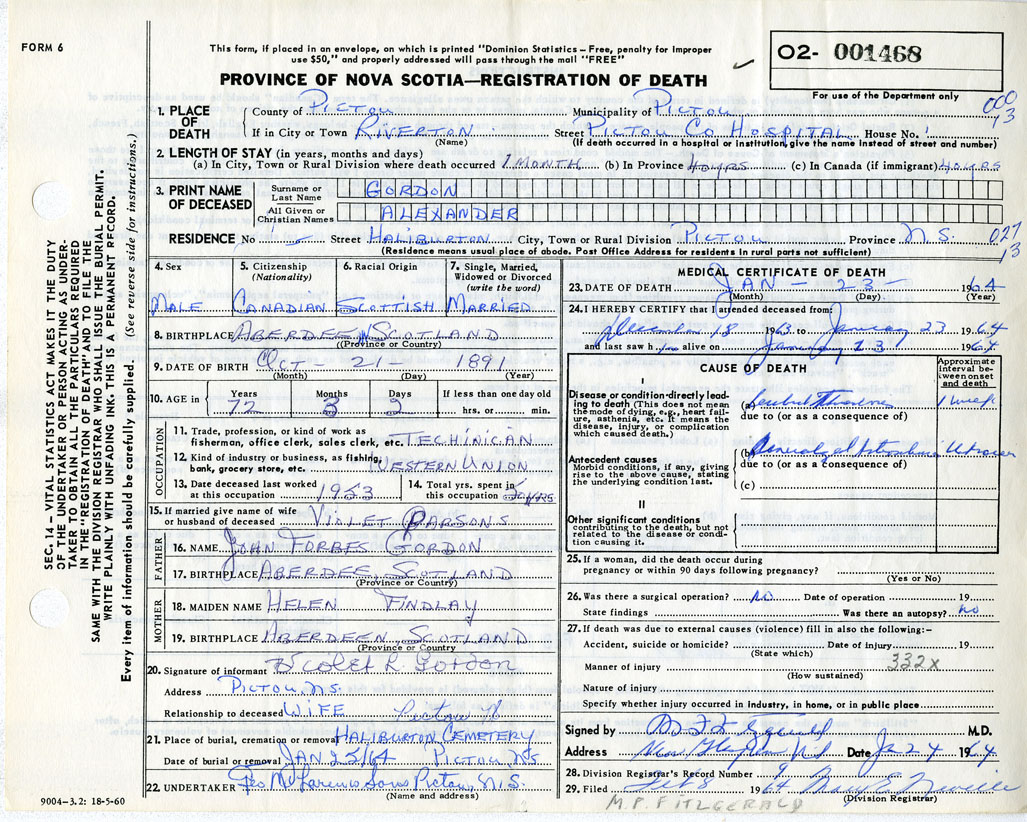 FORM 6
This form, if placed in an envelope, on which is printed "Dominion Statistics – Free, penalty for improper
use $50," and properly addressed will pass through the mail "FREE"
O2- 001468
PROVINCE OF NOVA SCOTIA—REGISTRATION OF DEATH
For use of the Department only
000
13
1. PLACE OF DEATH
County of PICTOU Municipality of PICTOU
If in City or Town RIVERTON Street PICTOU CO HOSPITAL House No.
(Name) (If death occurred in a hospital or institution, give the name instead of street and number)
2. LENGTH OF STAY (in years, months and days)
(a) In City, Town or Rural Division where death occurred 1 MONTH (b) In Province 40 YRS (c) In Canada (if immigrant) 40 YRS
3. PRINT NAME OF DECEASED
Surname or Last Name GORDON
All Given or Christian Names ALEXANDER
RESIDENCE No Street HALIBURTON City, Town or Rural Division PICTOU Province N.S.
027
13
(Residence means usual place of abode. Post Office Address for residents in rural parts not sufficient)
4. Sex 5. Citizenship (Nationality) 6. Racial Origin 7. Single, Married, Widowed or Divorced (write the word)
MALE CANADIAN SCOTTISH MARRIED
8. BIRTHPLACE ABERDEEN SCOTLAND
(Province or Country)
9. DATE OF BIRTH OCT - 21 - 1891
(Month) (Day) (Year)
10. AGE in Years Months Days If less than one day old
72 3 2 hrs. or min.
OCCUPATION
11. Trade, profession, or kind of work as fisherman, office clerk, sales clerk, etc. TECHINICIAN
12. Kind of industry or business, as fishing, bank, grocery store, etc. WESTERN UNION
13. Date deceased last worked at this occupation 1953
14. Total yrs. spent in this occupation YRS
15. If married give name of wife or husband of deceased VIOLET PARSONS
FATHER
16. NAME JOHN FORBES GORDON
17. BIRTHPLACE ABERDEE, SCOTLAND
(Province or Country)
MOTHER
18. MAIDEN NAME HELEN FINDLAY
19. BIRTHPLACE ABERDEEN SCOTLAND
(Province or Country)
20. Signature of informant Violet R Gordon
Address PICTOU, N.S.
Relationship to deceased WIFE Pictou
21. Place of burial, cremation or removal HALIBURTON CEMETERY
Date of burial or removal JAN 25/64 PICTOU NS
22. UNDERTAKER Geo McLaren & Sons Pictou, N.S.
(Name and address)
9004-3.2: 18-5-60
MEDICAL CERTIFICATE OF DEATH
23. DATE OF DEATH JAN - 23 - 1964
(Month) (Day) (Year)
24. I HEREBY CERTIFY that I attended deceased from:
December 18 1963 to January 23 1964
and last saw him alive on January 23 1964
CAUSE OF DEATH
Approximate interval between onset and death
I
Disease or condition directly leading to death (This does not mean the mode of dying, e.g., heart failure, asthenia, etc. It means the disease, injury, or complication which caused death.)
(a) Cerebral Thrombosis 1 week
due to (or as a consequence of)
Antecedent causes
Morbid conditions, if any, giving rise to the above cause, stating the underlying condition last.
(b) Generalized
due to (or as a consequence of)
(c)
II
Other significant conditions
contributing to the death, but not related to the disease or condition causing it.
25. If a woman, did the death occur during pregnancy or within 90 days following pregnancy?
(Yes or No)
26. Was there a surgical operation? No Date of operation 19
State findings Was there an autopsy? No
27. If death was due to external causes (violence) fill in also the following:–
Accident, suicide or homicide? Date of injury 19
(State which)
332X
Manner of injury
(How sustained)
Nature of injury
Specify whether injury occurred in industry, in home, or in public place
Signed by M.D.
Address New Glasgow NS Date Jan 24 1964
28. Division Registrar's Record Number 9
29. Filed Feb 8 1964 Mary E Neville
(Division Registrar)
M.P. FITZGERALD
SEC. 14 – VITAL STATISTICS ACT MAKES IT THE DUTY
OF THE UNDERTAKER OR PERSON ACTING AS UNDER-
TAKER TO OBTAIN ALL THE PARTICULARS REQUIRED
IN THE "REGISTRATION OF DEATH" AND TO FILE THE
SAME WITH THE DIVISION REGISTRAR WHO SHALL ISSUE THE BURIAL PERMIT.
WRITE PLAINLY WITH UNFADING INK. THIS IS A PERMANENT RECORD.
Every item of information should be carefully supplied. (See reverse side for instructions.)